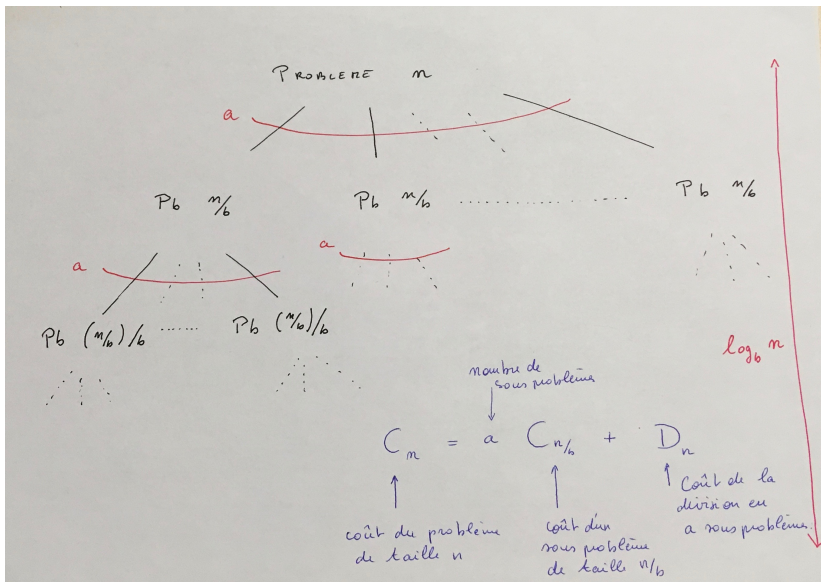 PROBLEME n
a
Pb n/b Pb n/b .................... Pb n/b
a
a
Pb (n/b)/b ....... Pb (n/b)/b
log_b n
nombre de
sous problèmes
C_n = a C_{n/b} + D_n
coût du problème
de taille n
coût d'un
sous problème
de taille n/b
Coût de la
division en
a sous problèmes.